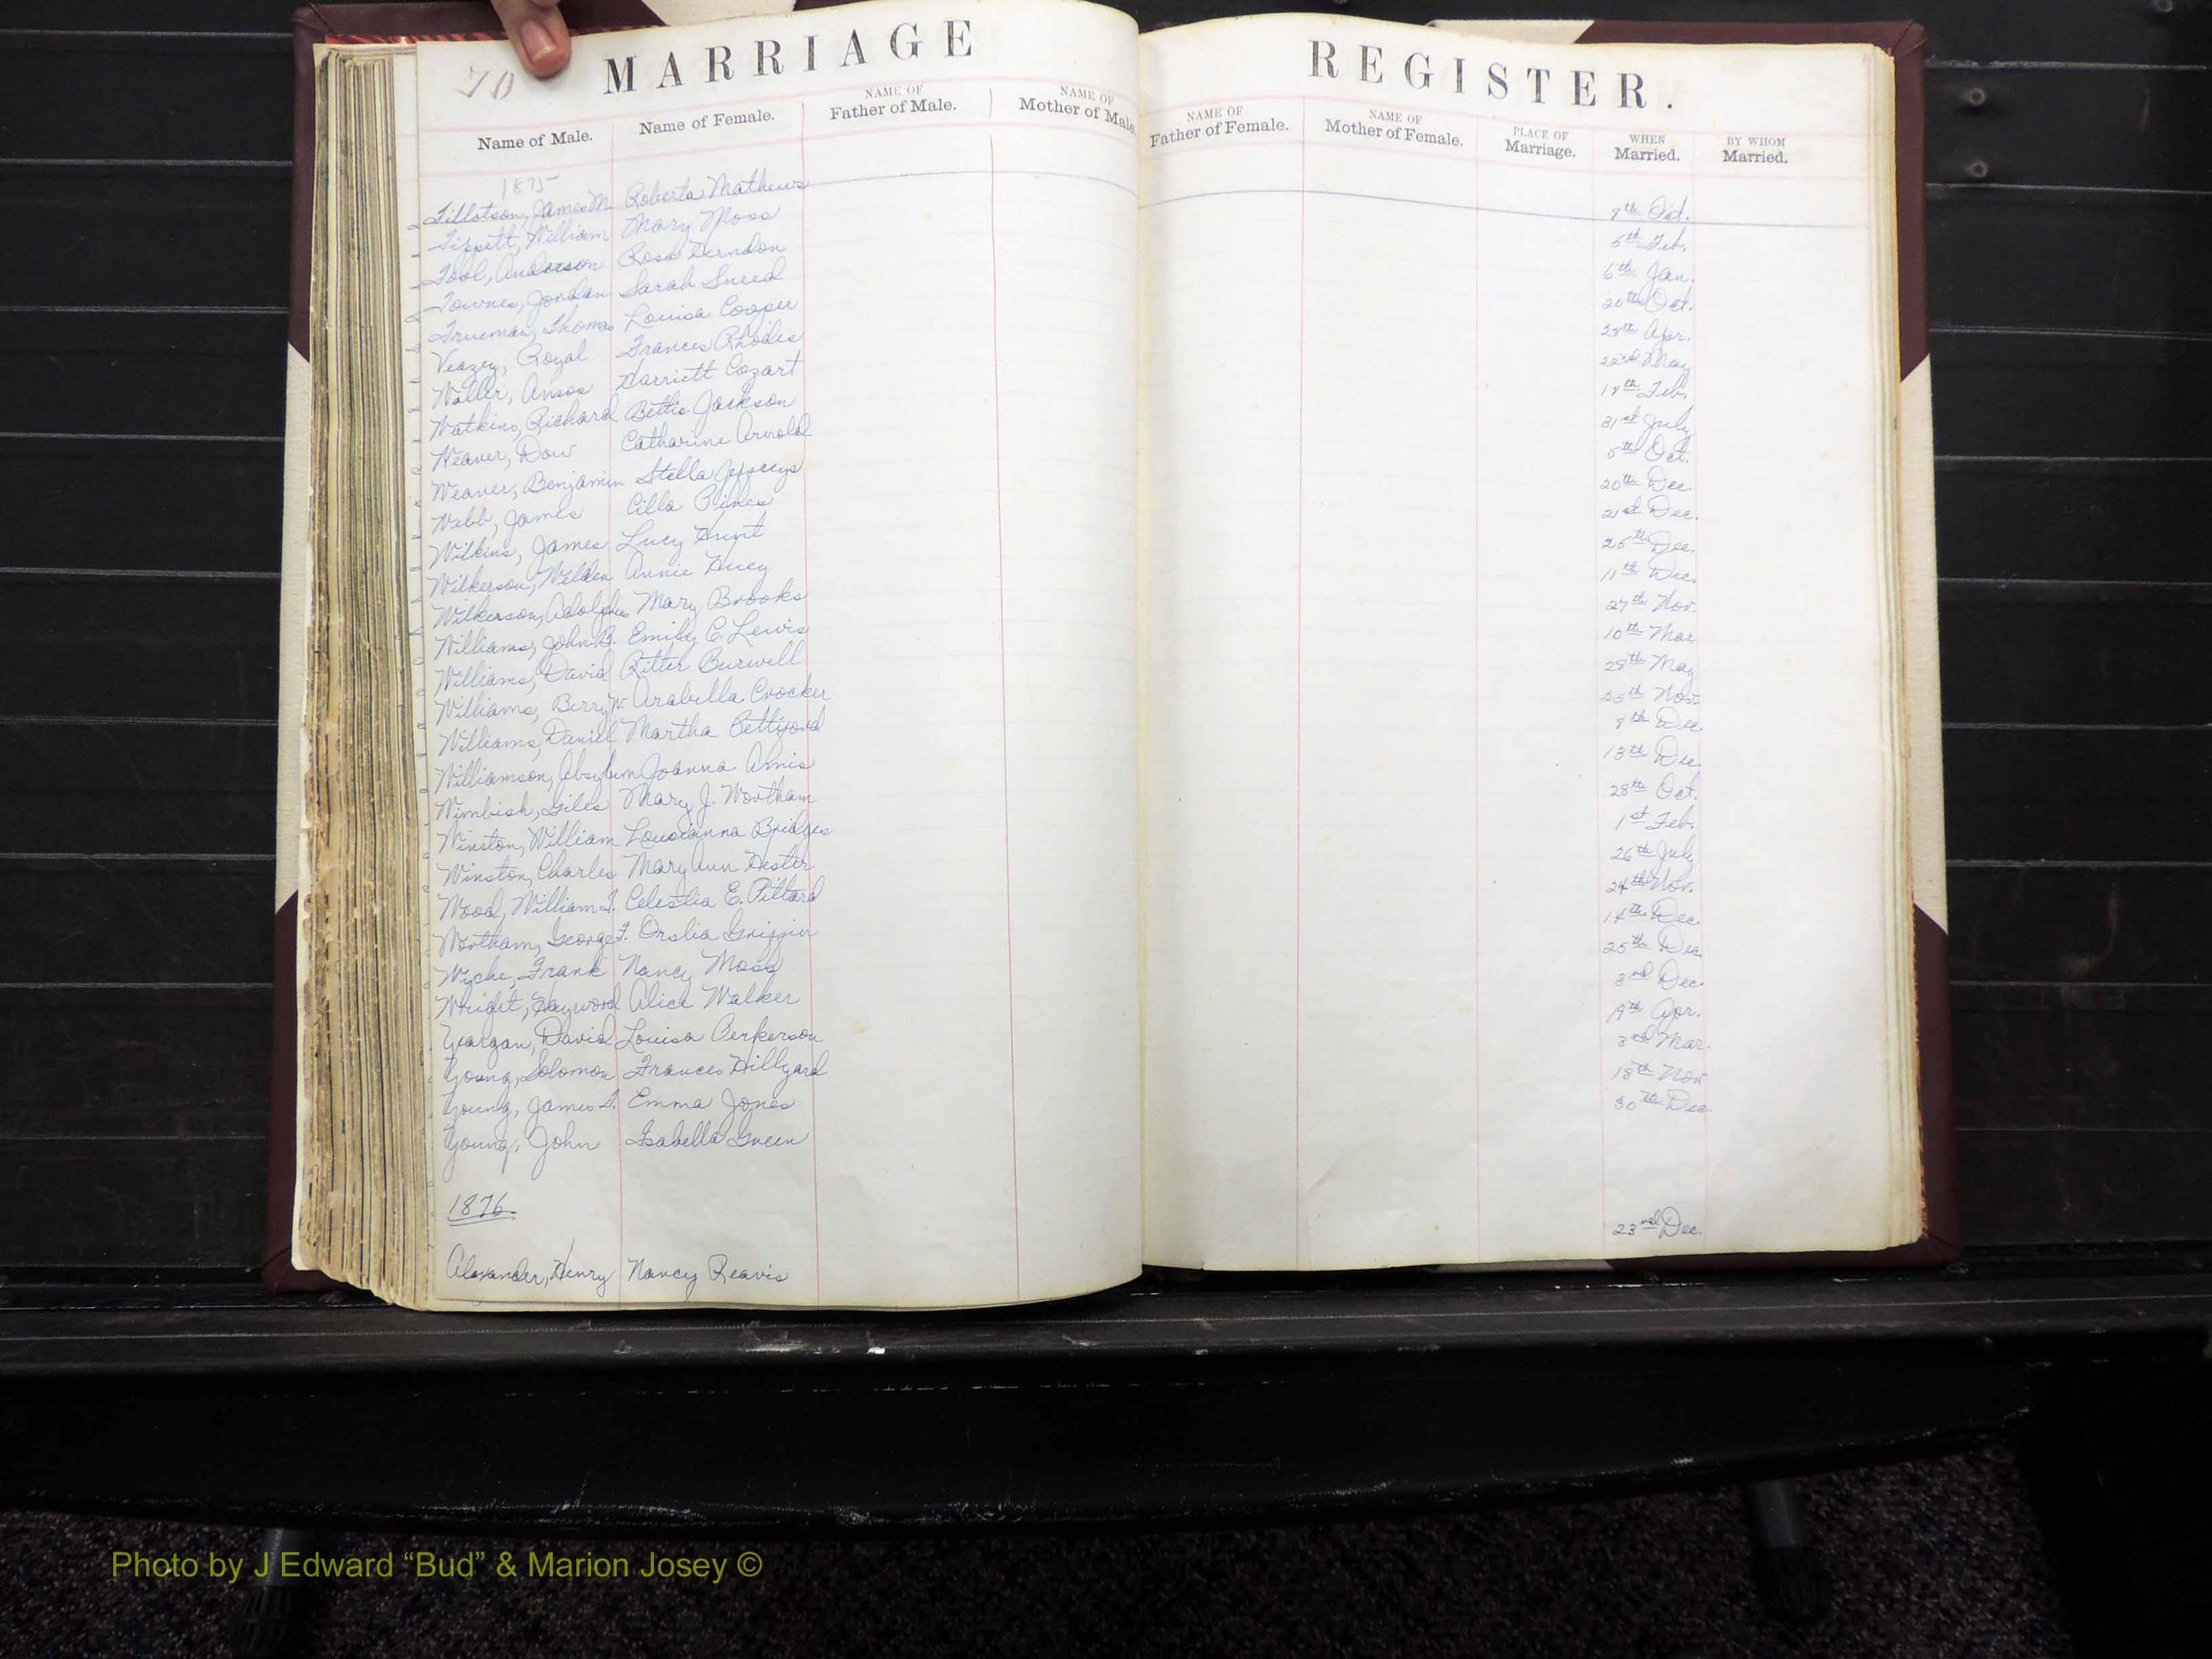 70 MARRIAGE REGISTER.
Name of Male. Name of Female. NAME OF Father of Male. NAME OF Mother of Male. NAME OF Father of Female. NAME OF Mother of Female. PLACE OF Marriage. WHEN Married. BY WHOM Married.
1875
Tillotson, James M. Roberta Mathews 7th Oct.
Tippett, William Mary Moss 5th Feb.
Tool, Anderson Rosa Herndon 6th Jan.
Townes, Jordan Sarah Sneed 20th Oct.
Trueman, Thomas Louisa Cooper 28th Apr.
Veazey, Royal Frances Rhodes 22nd May
Waller, Amos Harriett Cozart 18th Feb.
Watkins, Richard Bettie Jackson 31st July
Weaver, Dow Catharine Arnold 5th Oct.
Weaver, Benjamin Stella Jeffreys 20th Dec.
Webb, James Cilla Hines 21st Dec.
Wilkins, James Lucy Hunt 25th Dec.
Wilkerson, Welden Annie Huey 11th Dec.
Wilkerson, Adolphus Mary Brooks 27th Nov.
Williams, John B. Emily C. Lewis 10th Mar.
Williams, David Ritter Burwell 28th May
Williams, Berry W. Arabella Crocker 25th Nov.
Williams, Daniel Martha Pettiford 8th Dec.
Williamson, Absylum Joanna Amis 13th Dec.
Wimbish, Giles Mary J. Wortham 28th Oct.
Winston, William Lousianna Bridges 1st Feb.
Winston, Charles Mary Ann Hester 26th July
Wood, William T. Celestia E. Pittard 24th Nov.
Wortham, George F. Orslia Griffin 14th Dec.
Wiche, Frank Nancy Moss 25th Dec.
Wright, Haywood Alice Walker 3rd Dec.
Yeargan, David Louisa Perkerson 19th Apr.
Young, Solomon Frances Hillyard 3rd Mar.
Young, James T. Emma Jones 18th Nov
Young, John Isabella Green 30th Dec.
1876.
Alexander, Henry Nancy Reavis 23rd Dec.
Photo by J Edward “Bud” & Marion Josey ©